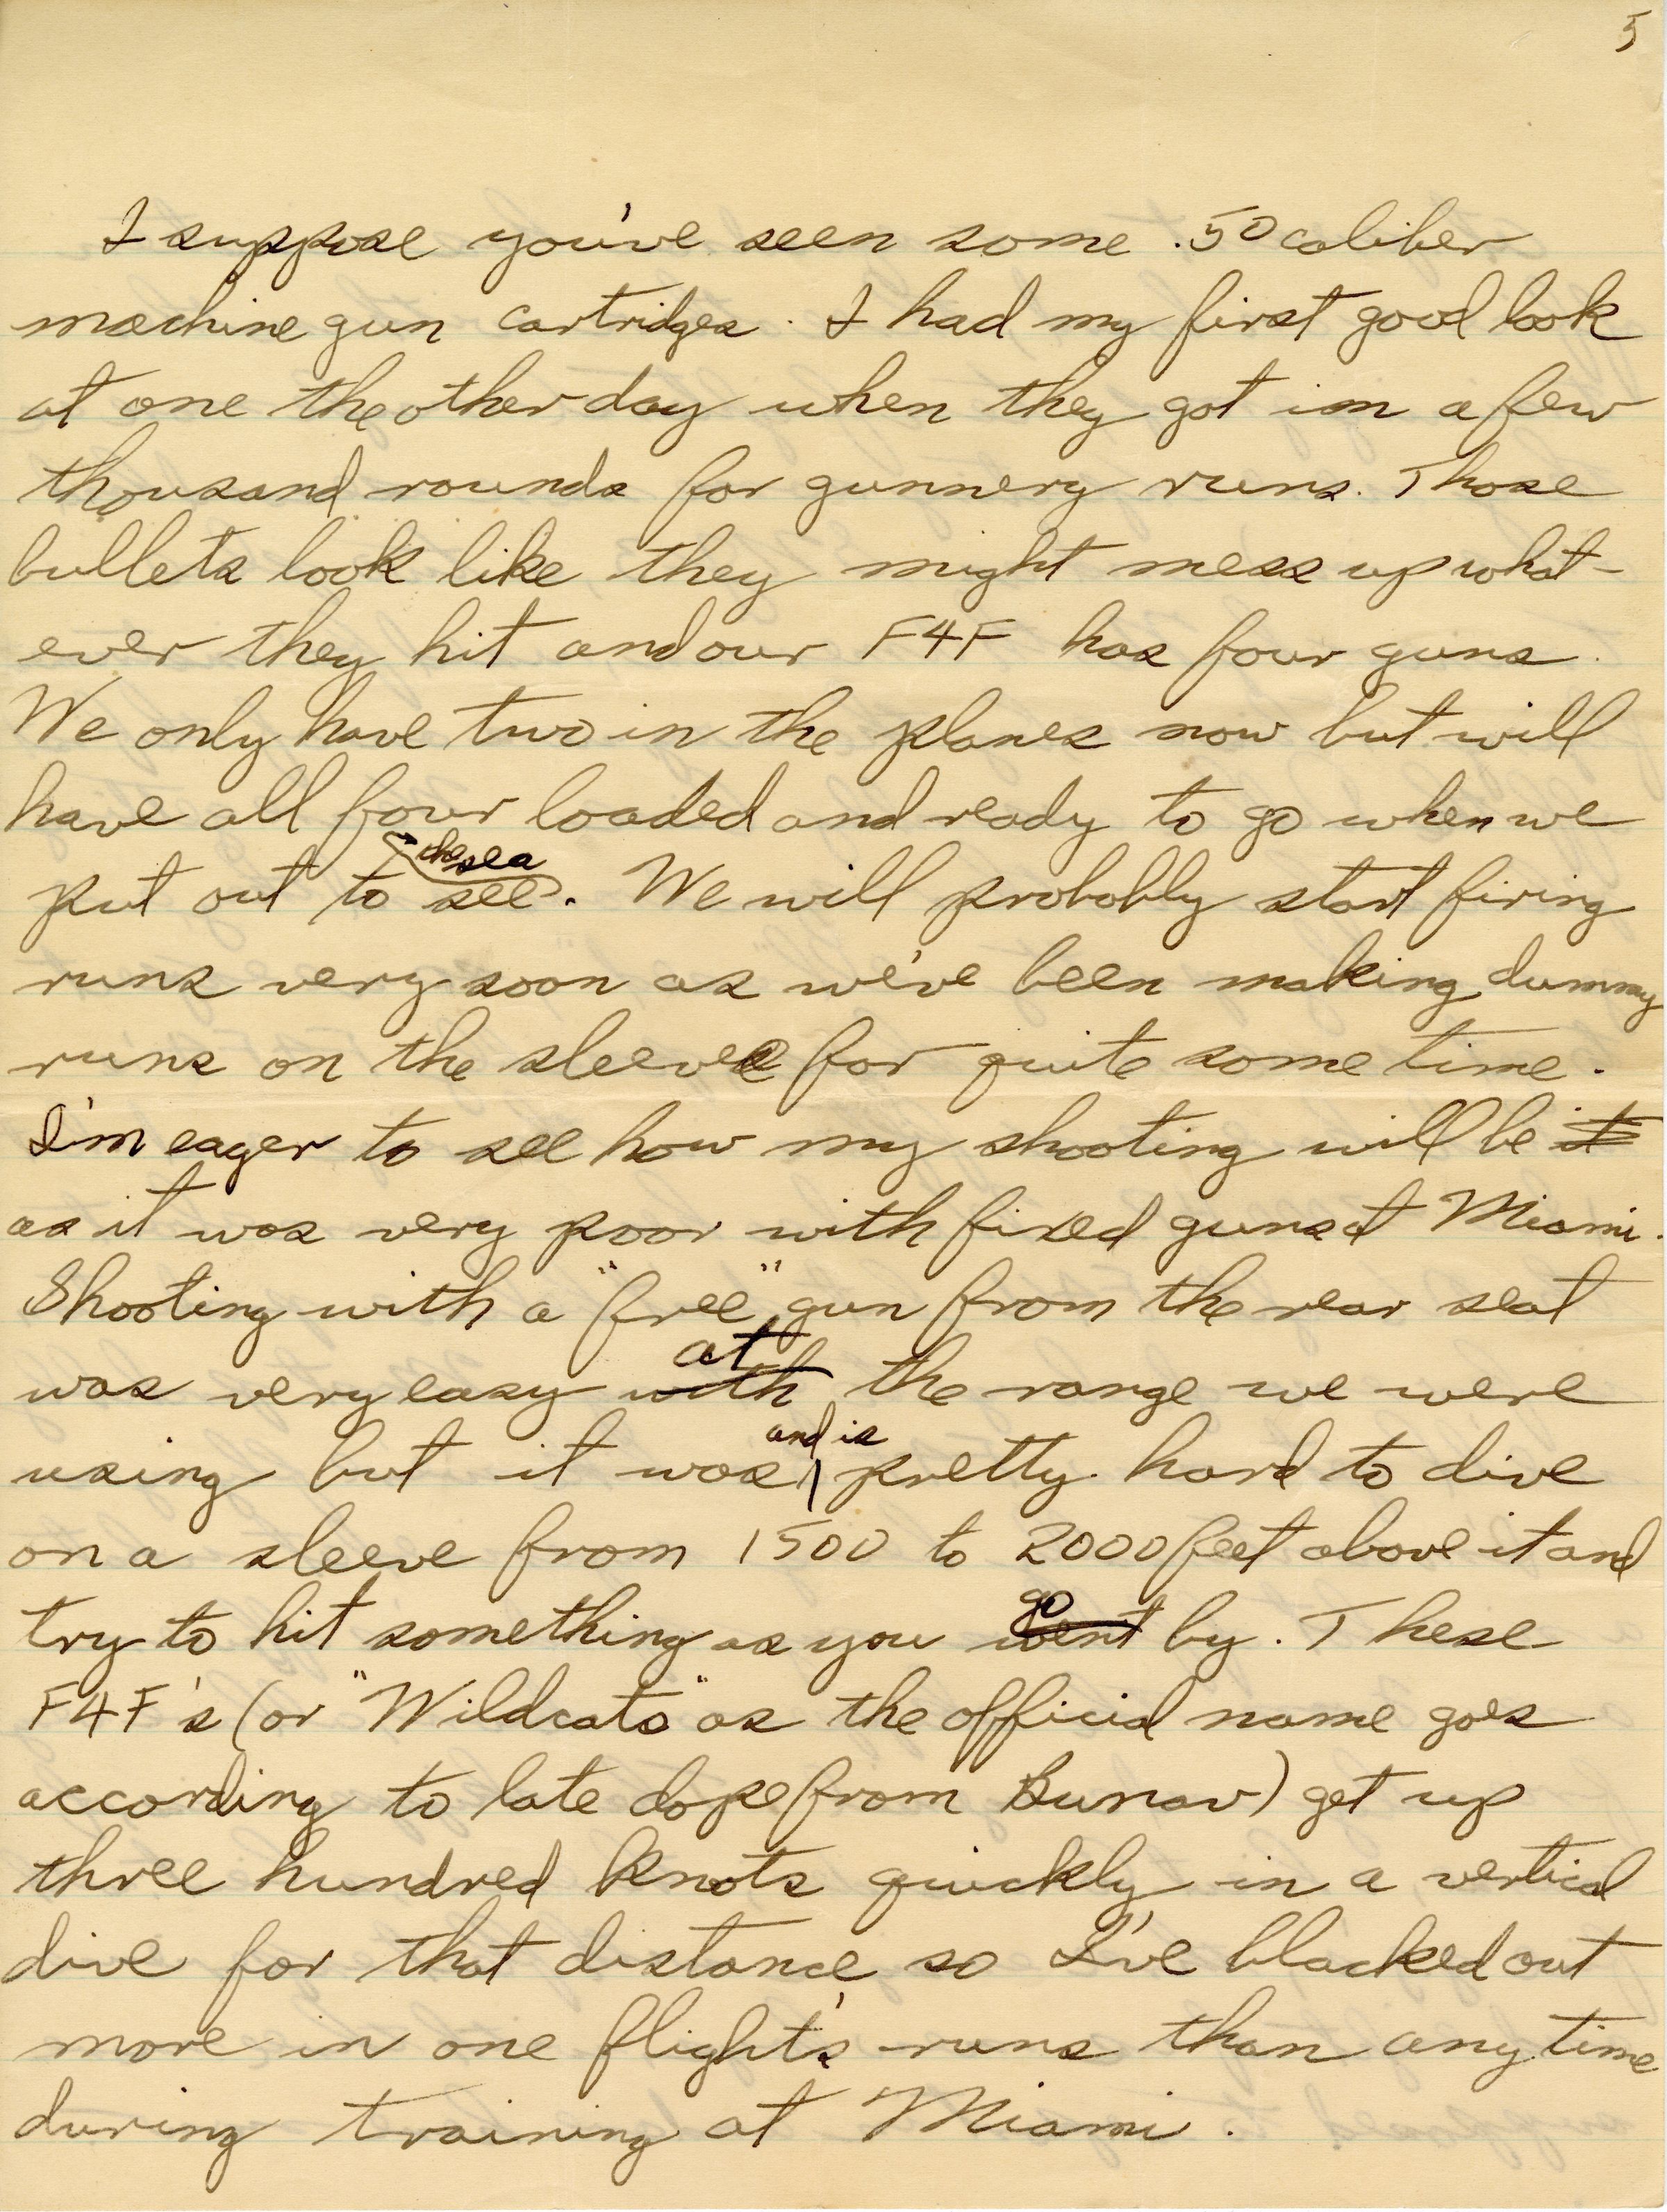 5
I suppose you've seen some .50 caliber
machine gun cartridges. I had my first good look
at one the other day when they got in a few
thousand rounds for gunnery runs. Those
bullets look like they might mess up what-
ever they hit and our F4F has four guns.
We only have two in the planes now but will
have all four loaded and ready to go when we
the sea
put out to see. We will probably start firing
runs very soon as we've been making dummy
runs on the sleeve for quite some time.
I'm eager to see how my shooting will be it
as it was very poor with fixed guns at Miami.
Shooting with a "free" gun from the rear seat
at
was very easy with the range we were
and is
using but it was pretty hard to dive
on a sleeve from 1500 to 2000 feet above it and
go
try to hit something as you went by. These
F4F's (or "Wildcats" as the official name goes
according to late dope from Bunav) get up
three hundred knots quickly in a vertical
dive for that distance so I've blacked out
more in one flight's runs than any time
during training at Miami.